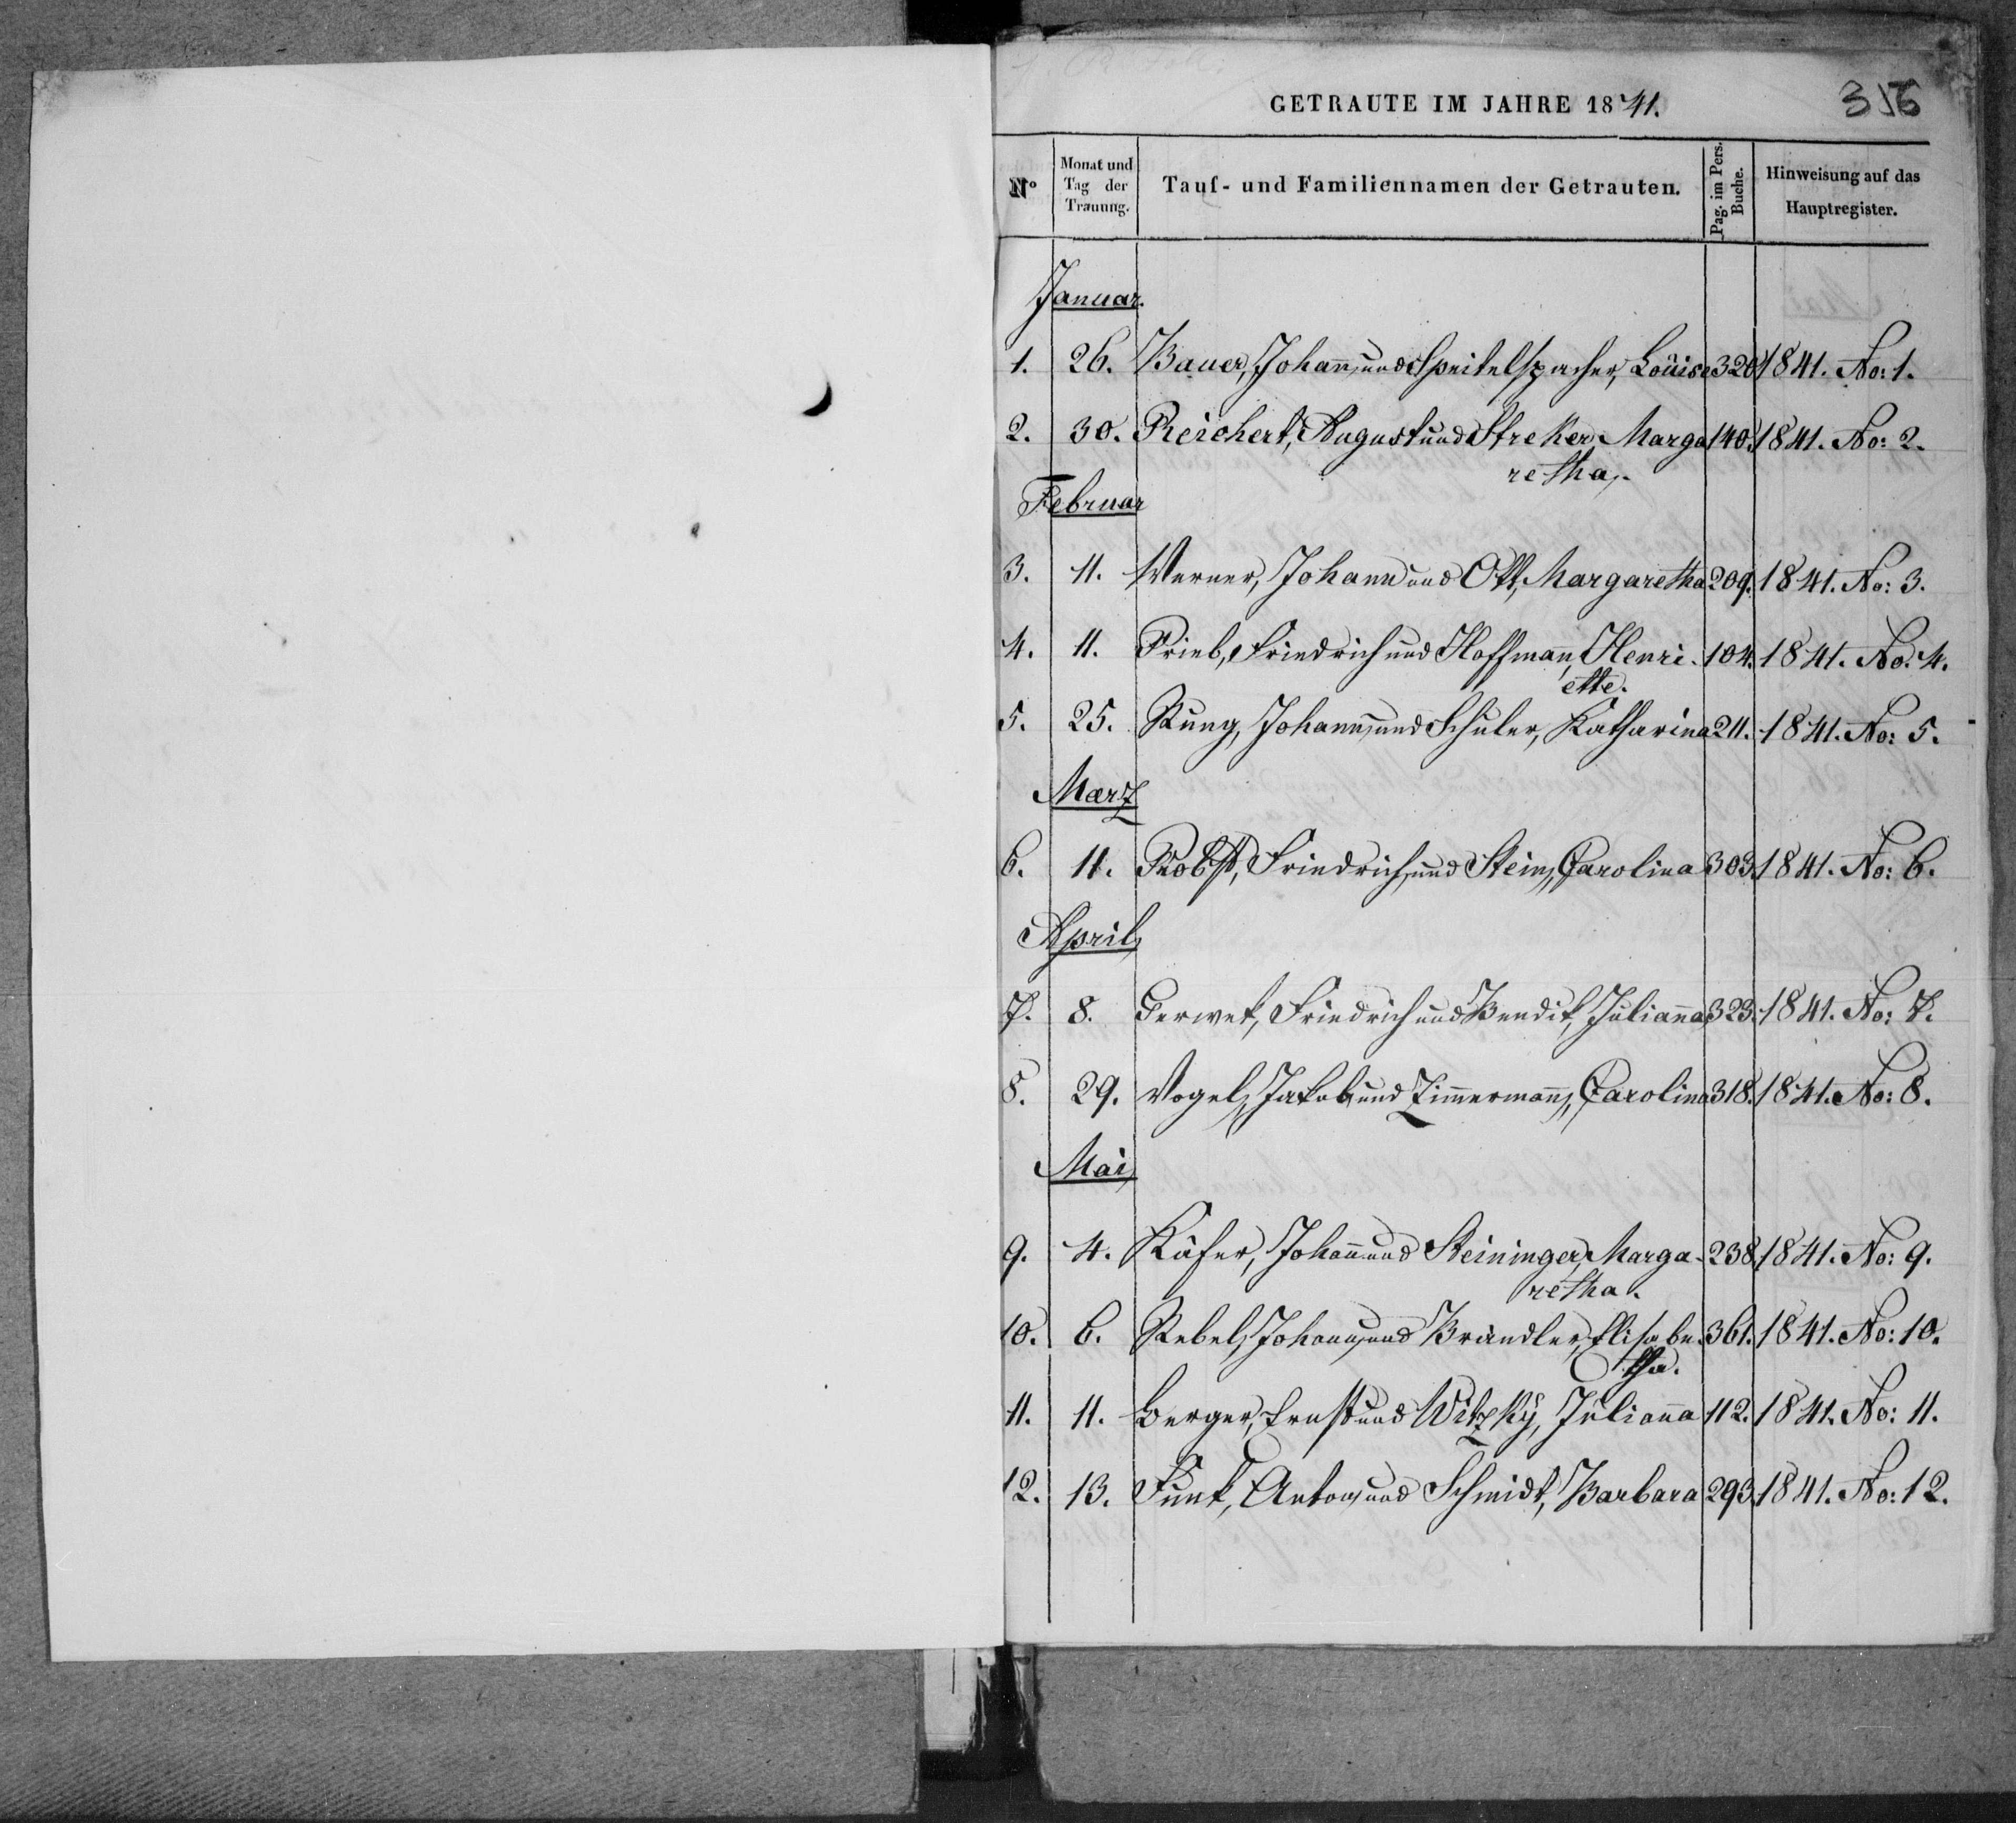 GETRAUTE IM JAHRE 1841.
316
No
Monat und Tag der Trauung.
Tauf- und Familiennamen der Getrauten.
Pag. im Pers. Buche.
Hinweisung auf das Hauptregister.
Januar.
1. 26. Bauer, Johann und Speitelspacher, Louise 320 1841. No: 1.
2. 30. Reichert, August und Streker Marga 140. 1841. No: 2.
retha.
Februar
3. 11. Werner, Johann und Ott, Margaretha 209. 1841. No: 3.
4. 11. Prieb, Friedrich und Hoffmann, Henri- 104. 1841. No. 4.
ette.
5. 25. Rung, Johann und Schuler, Katharina 211. 1841. No: 5.
Maerz
6. 11. Probst, Friedrich und Stein, Carolina 303. 1841. No: 6.
April
7. 8. Gerwet, Friedrich und Bendit, Julianna 323. 1841. No: 7.
8. 29. Vogel, Jakob und Zimmermann, Carolina 318. 1841. No: 8.
Mai
9. 4. Käfer, Johann und Steininger, Marga- 238. 1841. No: 9.
retha.
10. 6. Rebel, Johann und Brändler, Elisabe- 361. 1841. No: 10.
tha.
11. 11. Berger, Ernst und Witzky, Julianna 112. 1841. No: 11.
12. 13. Funk, Anton und Schmidt, Barbara 293. 1841. No: 12.